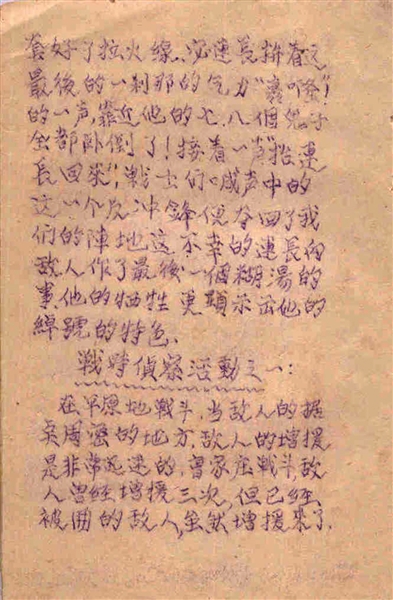 套好了拉火線.这連長拚着这
最後的一刹那的气力"轰咚!"
的一声,靠近他的七.八個鬼子
全部卧倒了!接着一声"抬連
長回来",戰士们喊声中的
这一个反冲鋒便夺回了我
们的陣地这不幸的連長向
敌人作了最後一個糊湯的
事.他的牺牲更顕示出他的
綽號的特色.
戰時偵察活動之一:
在平原地戰斗.当敌人的据
奌周圍的地方,敌人的增援
是非常迅速的.曾家庄戰斗敌
人曾經增援三次,但已經
被囲的敌人,虽然增援来了.